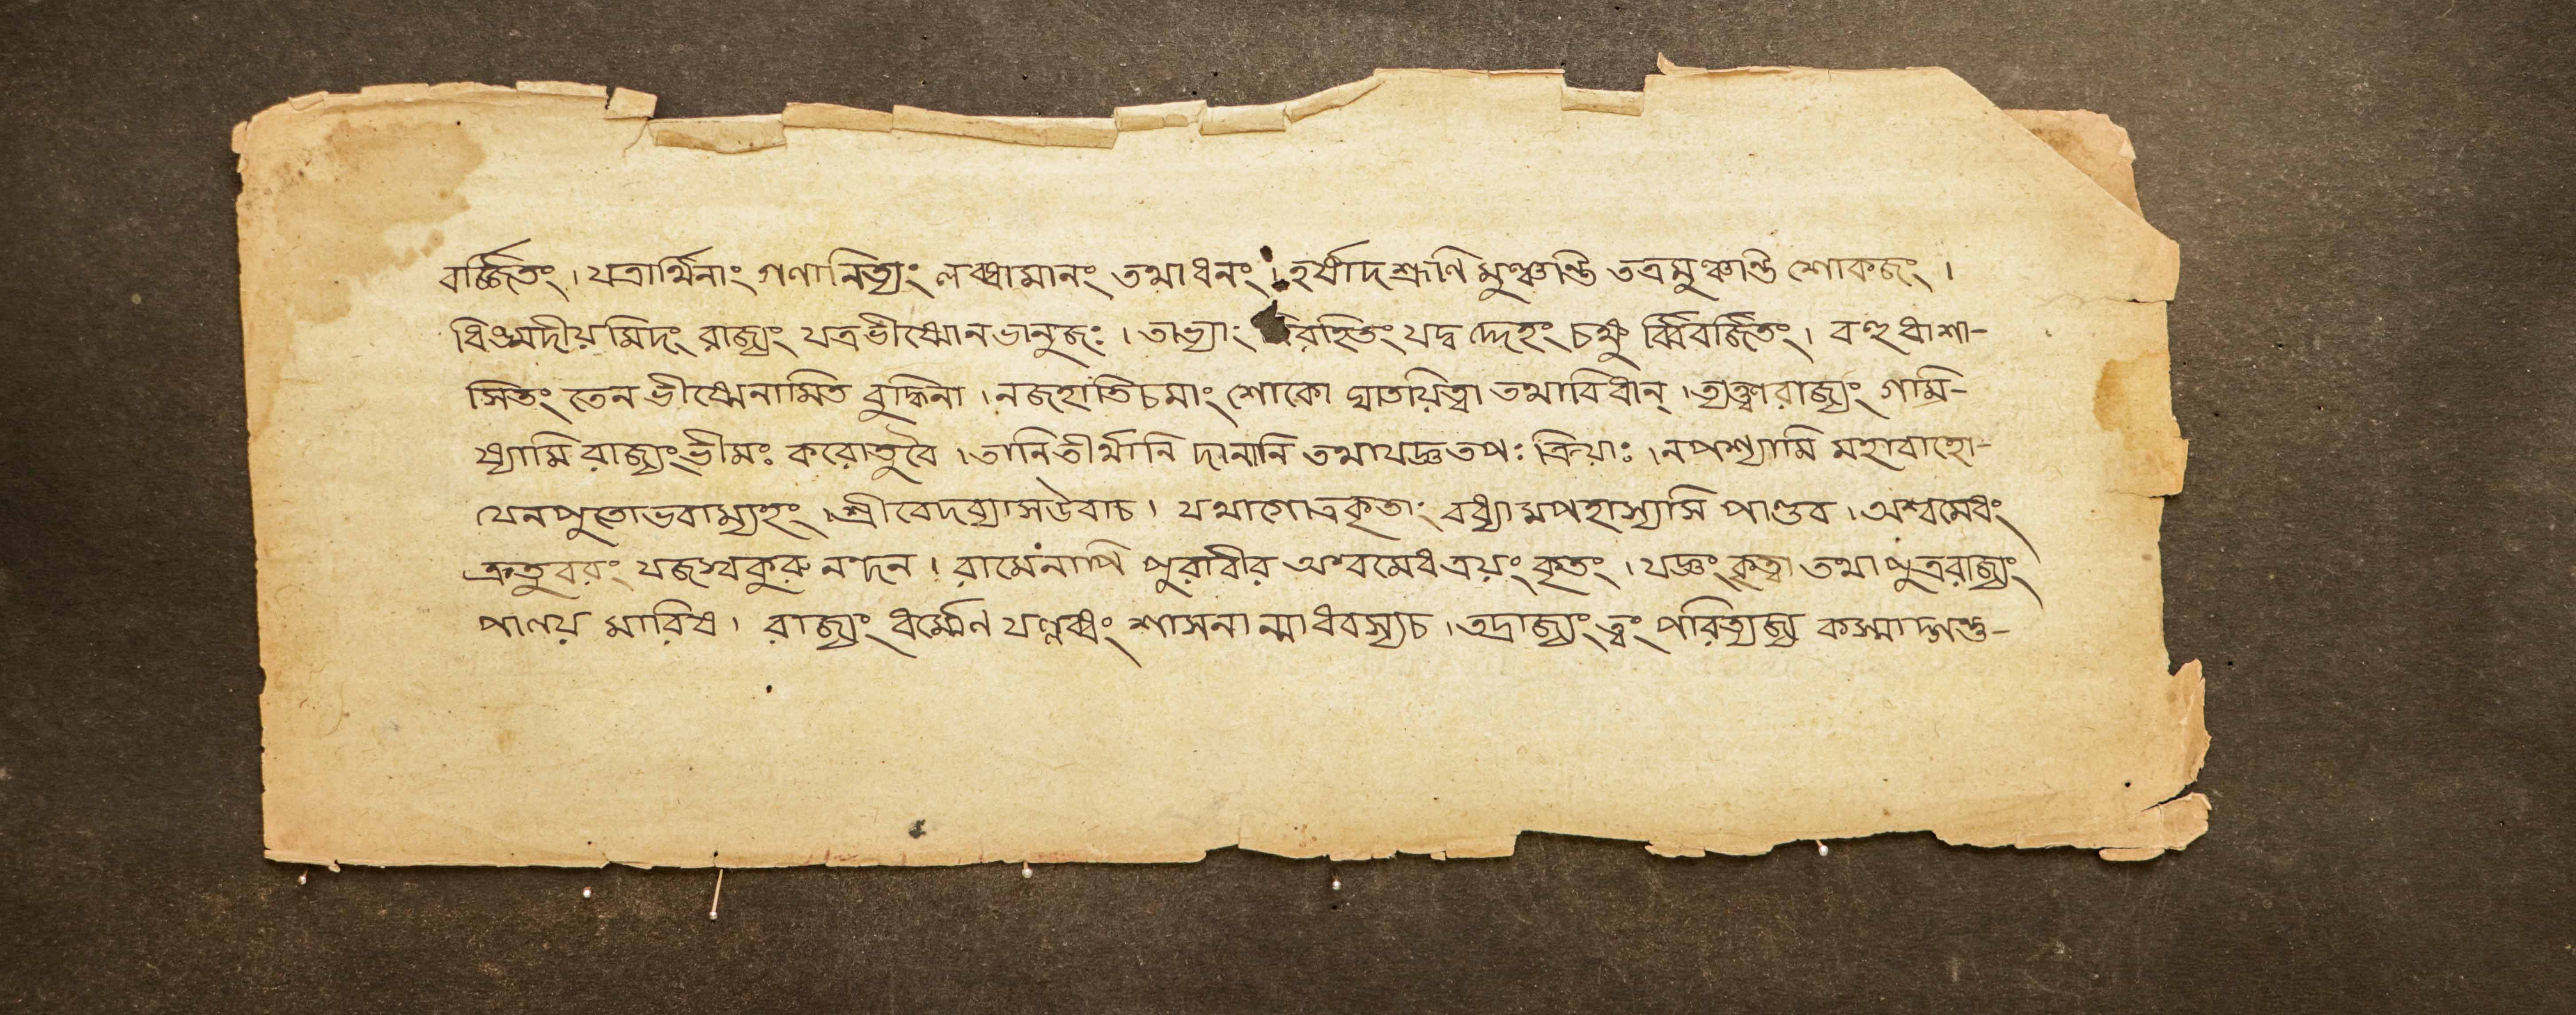 বর্জ্জিতং। যত্রার্থিনাং গণানিত্যং লব্ধ্বামানং তথাধনং। হর্ষাদশ্রূণি মুঞ্চন্তি তত্রমুঞ্চন্তি শোকজং।
ধিঙ্মদীয়মিদং রাজ্যং যত্রভীষ্মোনভানুজঃ। তাভ্যাং বিরহিতং যদ্ব দ্দেহং চক্ষু র্ব্বিবর্জিতং। বহুধাশা-
সিতং তেন ভীষ্মেনামিত বুদ্ধিনা। নজহাতিচমাং শোকো ঘাতয়িত্বা তথাবিধান্। ত্যক্ত্বারাজ্যং গামি-
ষ্যামি রাজ্যংভীমঃ করোতুবৈ। তানিতীর্থানি দানানি তথাযজ্ঞতপঃ ক্রিয়াঃ। নপশ্যামি মহাবাহো-
যেনপুতোভবাম্যহং। শ্রীবেদব্যাসউবাচ। যথাগোত্রকৃতাং বধ্যামপহাস্যাসি পাণ্ডব। অশ্বমেধং
ক্রতুবরং যজস্বকুরু নন্দন। রামেনাপি পুরাবীর অশ্বমেধত্রয়ং কৃতং। যজ্ঞং কৃত্বা তথাপুত্ররাজ্যং
পালয় মারিষ। রাজ্যং ধর্ম্মেণ যল্লব্ধং শাসনান্মাধবস্যচ। তদ্রাজ্যং ত্বং পরিত্যজ্য কস্মাদ্গন্তু-